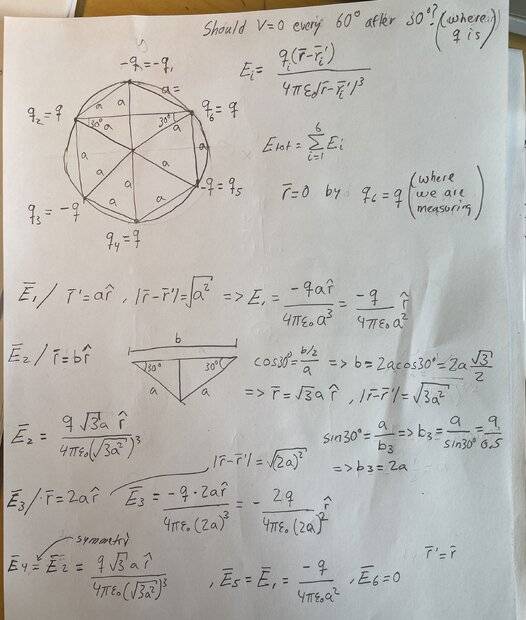 Should V=0 every 60° after 30°? (where q is)
y
-q=-q₁
q₂=q
q₆=q
q₃=-q
-q=q₅
q₄=q
a
a
a=
a
30°
a
30°
a
a
a
a
a
a
Eᵢ = qᵢ(r̄-r̄ᵢ')/4πε₀|r̄-r̄ᵢ'|³
Etot = Σᵢ₌₁⁶ Eᵢ
r̄=0 by q₆=q (where we are measuring)
Ē₁/ r̄'=ar̂, |r̄-r̄'|=√a² => E₁ = -qar̂/4πε₀a³ = -q/4πε₀a² r̂
b
Ē₂/ r̄=br̂
30°
30°
a
a
cos30° = (b/2)/a => b=2acos30°=2a √3/2
=> r̄=√3 a r̂, |r̄-r̄'|=√3a²
Ē₂ = q√3a r̂/4πε₀(√3a²)³
sin30° = a/b₃ => b₃ = a/sin30° = a/0.5
=> b₃=2a
|r̄-r̄'|=√(2a)²
Ē₃/ r̄=2ar̂
Ē₃ = -q·2ar̂/4πε₀(2a)³ = - 2q/4πε₀(2a)² r̂
symmetry
Ē₄=Ē₂ = q√3 a r̂/4πε₀(√3a²)³ , Ē₅=Ē₁ = -q/4πε₀a² , Ē₆=0
r̄'=r̄